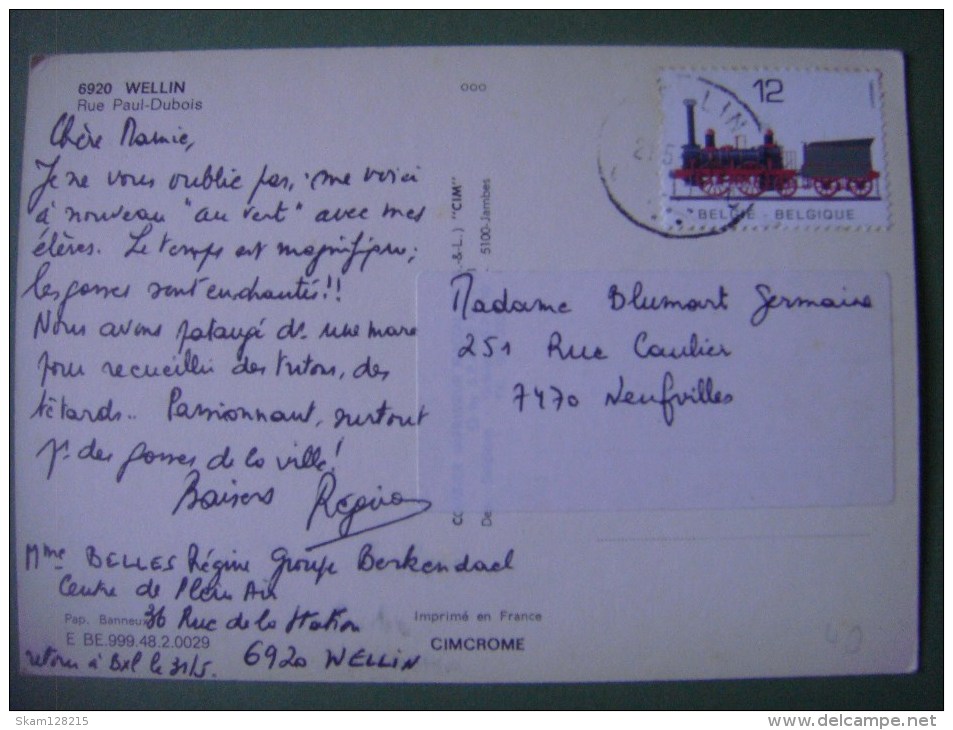 6920 WELLIN
Rue Paul-Dubois
Chère Mamie,
Je ne vous oublie pas, me voici
à nouveau "au vert" avec mes
élèves. Le temps est magnifique ;
les gosses sont enchantés !!
Nous avons pataugé ds une mare
pour recueillir des tritons, des
têtards.. Passionnant, surtout
pr des gosses de la ville !
Baisers Régine
Mme BELLES Régine Groupe Berkendael
Centre de Plein Air
36 Rue de la Station
6920 WELLIN
retour à Bxl le 31/5.
Pap. Banneux
E BE.999.48.2.0029
Imprimé en France
CIMCROME
ooo
"CIM"
5100-Jambes
12
BELGIË - BELGIQUE
LIN
Madame Blumart Germaine
251 Rue Caulier
7470 Neufvilles
49
Skam128215
delcampe.net